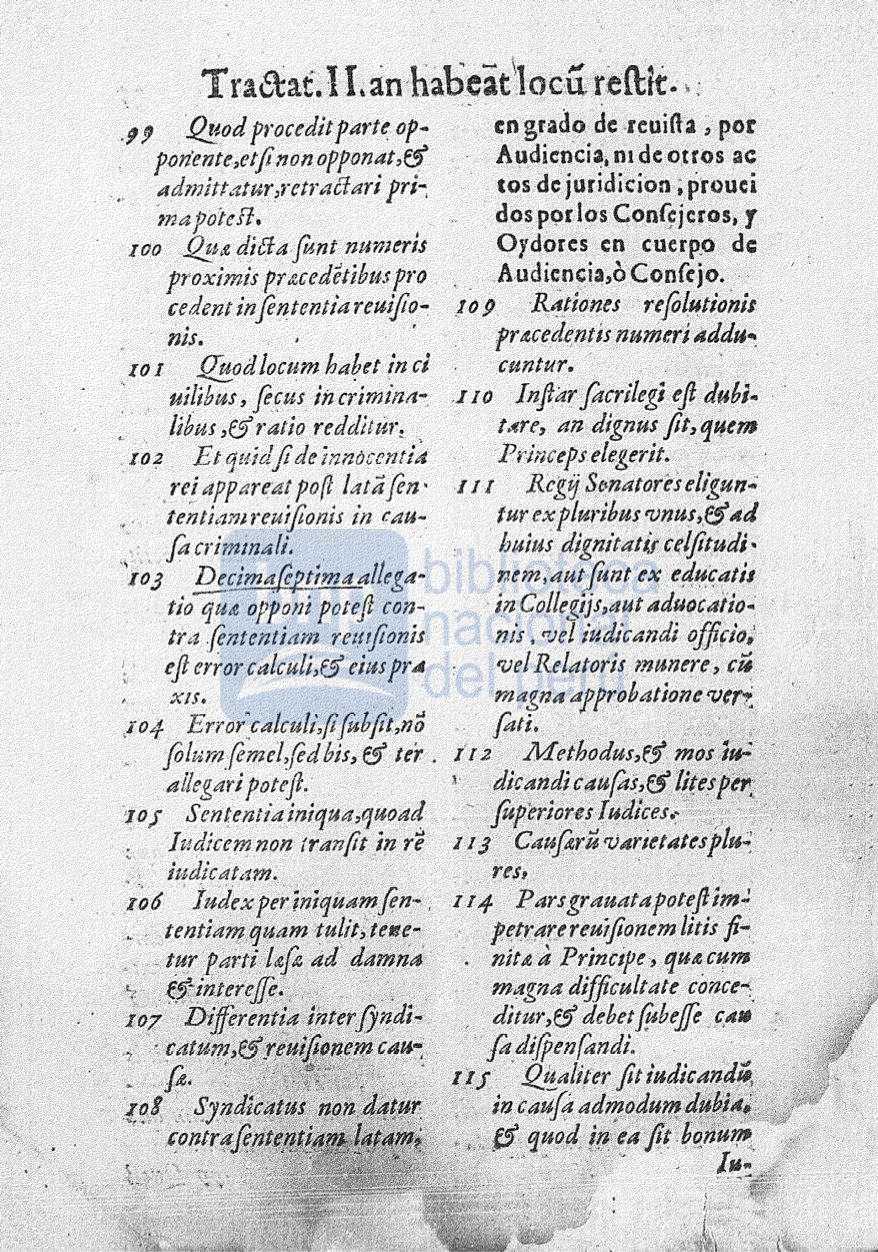 Tractat. II. an habeāt locū restit.
99 Quod procedit parte op-
ponente, et si non opponat, &
admittatur, retractari pri-
ma potest.
100 Quæ dicta sunt numeris
proximis præcedētibus pro
cedent in sententia reuisio-
nis.
101 Quod locum habet in ci
uilibus, secus in crimina-
libus, & ratio redditur.
102 Et quid si de innocentia
rei appareat post latā sen-
tentiam reuisionis in cau-
sa criminali.
103 Decimaseptima allega-
tio quæ opponi potest con-
tra sententiam reuisionis
est error calculi, & eius pra
xis.
104 Error calculi, si subsit, nō
solum semel, sed bis, & ter
allegari potest.
105 Sententia iniqua, quoad
Iudicem non transit in rē
iudicatam.
106 Iudex per iniquam sen-
tentiam quam tulit, tene-
tur parti læsæ ad damna
& interesse.
107 Differentia inter syndi-
catum, & reuisionem cau-
sæ.
108 Syndicatus non datur
contra sententiam latam,
en grado de reuista, por
Audiencia, ni de otros ac
tos de juridicion, prouei
dos por los Consejeros, y
Oydores en cuerpo de
Audiencia, ò Consejo.
109 Rationes resolutionis
præcedentis numeri addu-
cuntur.
110 Instar sacrilegi est dubi-
tare, an dignus sit, quem
Princeps elegerit.
111 Regij Senatores eligun-
tur ex pluribus vnus, & ad
huius dignitatis celsitudi-
nem, aut sunt ex educatis
in Collegijs, aut aduocatio-
nis, vel iudicandi officio,
vel Relatoris munere, cū
magna approbatione ver-
sati.
112 Methodus, & mos iu-
dicandi causas, & lites per
superiores Iudices.
113 Causarū varietates plu-
res,
114 Pars grauata potest im-
petrare reuisionem litis fi-
nitæ à Principe, quæ cum
magna difficultate conce-
ditur, & debet subesse cau
sa dispensandi.
115 Qualiter sit iudicandū
in causa admodum dubia,
& quod in ea sit bonum
Iu-
biblioteca
nacional
del perú